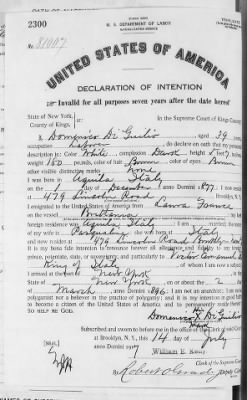 2300
U. S. DEPARTMENT OF LABOR
No. 81007
UNITED STATES OF AMERICA
DECLARATION OF INTENTION
Invalid for all purposes seven years after the date hereof
State of New York,
County of Kings,
In the Supreme Court of Kings County
I, Domenico Di Giulio aged 39
occupation Laborer, do declare on oath that my personal
description is: Color White, complexion Dark, height feet
weight 180 pounds, color of hair Brown, color of eyes Brown
other visible distinctive marks None
I was born in Aquila Italy
on the day of December, anno Domini 1877; I now reside
at 479 Lincoln Road
I emigrated to the United States of America from
on the vessel; my last
foreign residence was Aquila Italy
of my wife is Pasqualina; she was born in Italy
and now resides at 479 Lincoln Road
It is my bona fide intention to renounce forever all allegiance and fidelity to any foreign
prince, potentate, state, or sovereignty, and particularly to Victor Emmanuel
King of Italy, of whom I am now a subject
I arrived at the port of New York, in the
State of New York, on or about the 2 day
of March, anno Domini 1896; I am not an anarchist; I am not a
polygamist nor a believer in the practice of polygamy; and it is my intention in good faith
to become a citizen of the United States of America and to permanently reside therein:
SO HELP ME GOD.
Domenico Di Giulio
Subscribed and sworn to before me in the office of the Clerk of said Court
at Brooklyn, N. Y., this 14 day of July
anno Domini
[SEAL]
William E. Kelly
Clerk of the Supreme Court